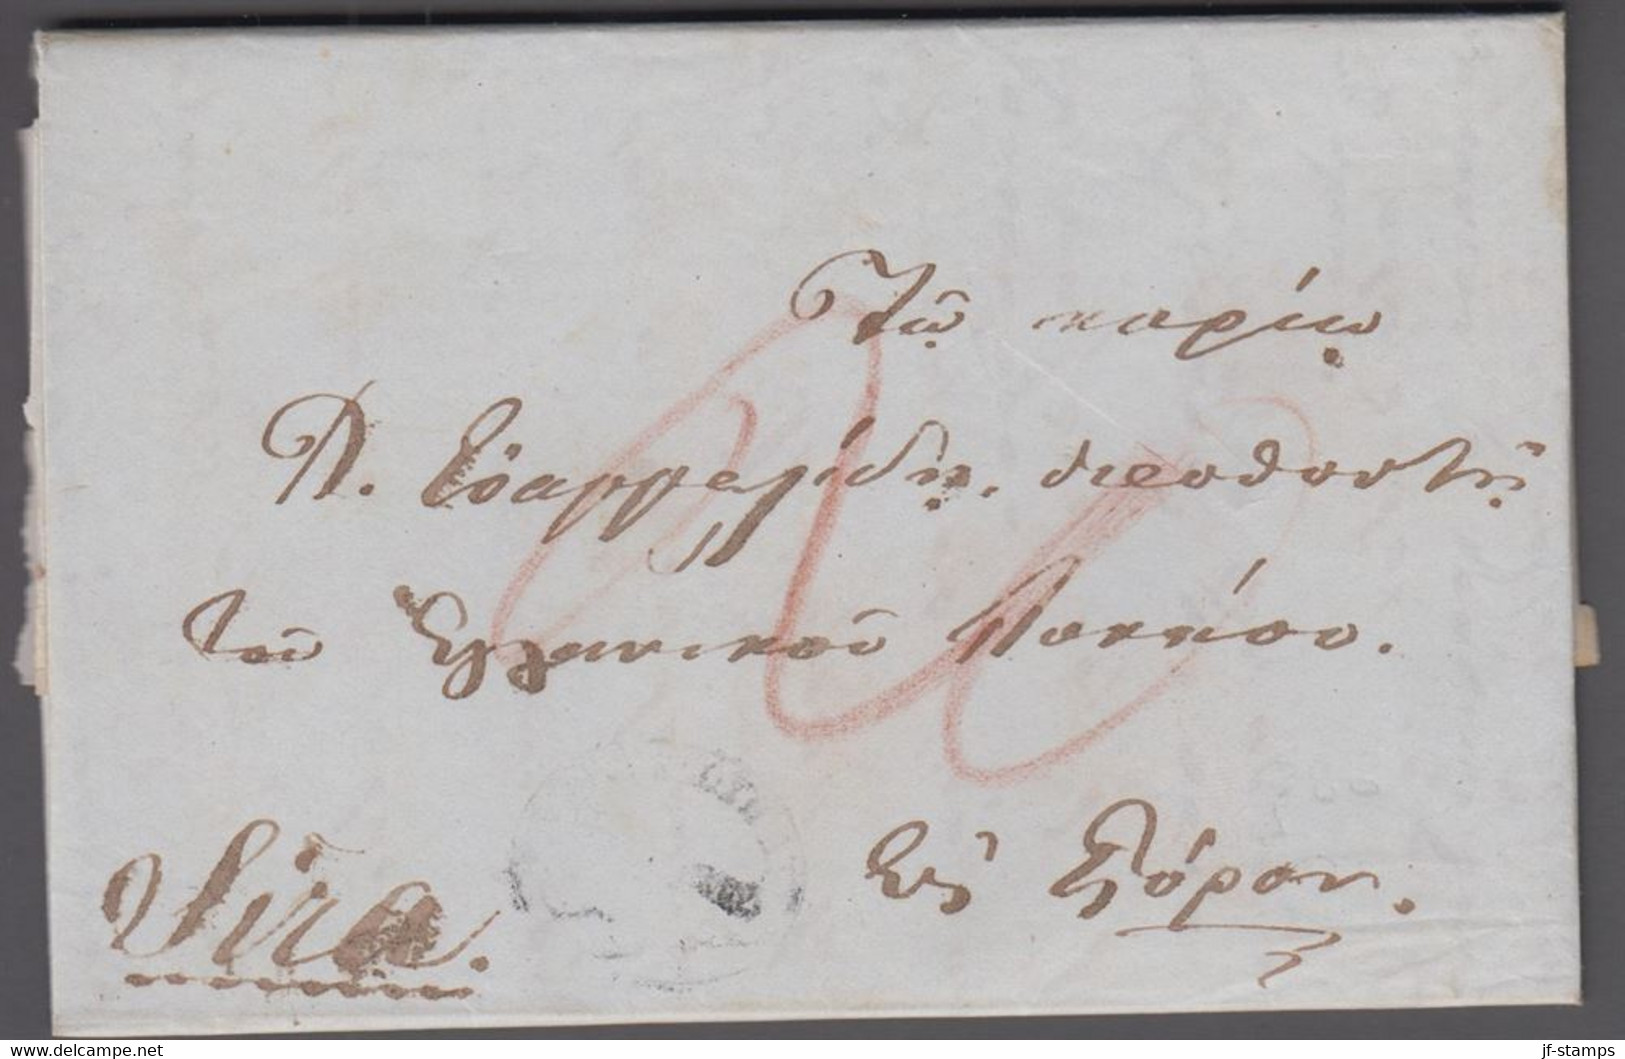 Τῷ κυρίῳ
Π. Εὐαγγελίδῃ, διευθυντῇ
τοῦ Ἑλληνικοῦ Λυκείου.
Εἰς Σῦρον.
Sira.
www.delcampe.net
jf-stamps